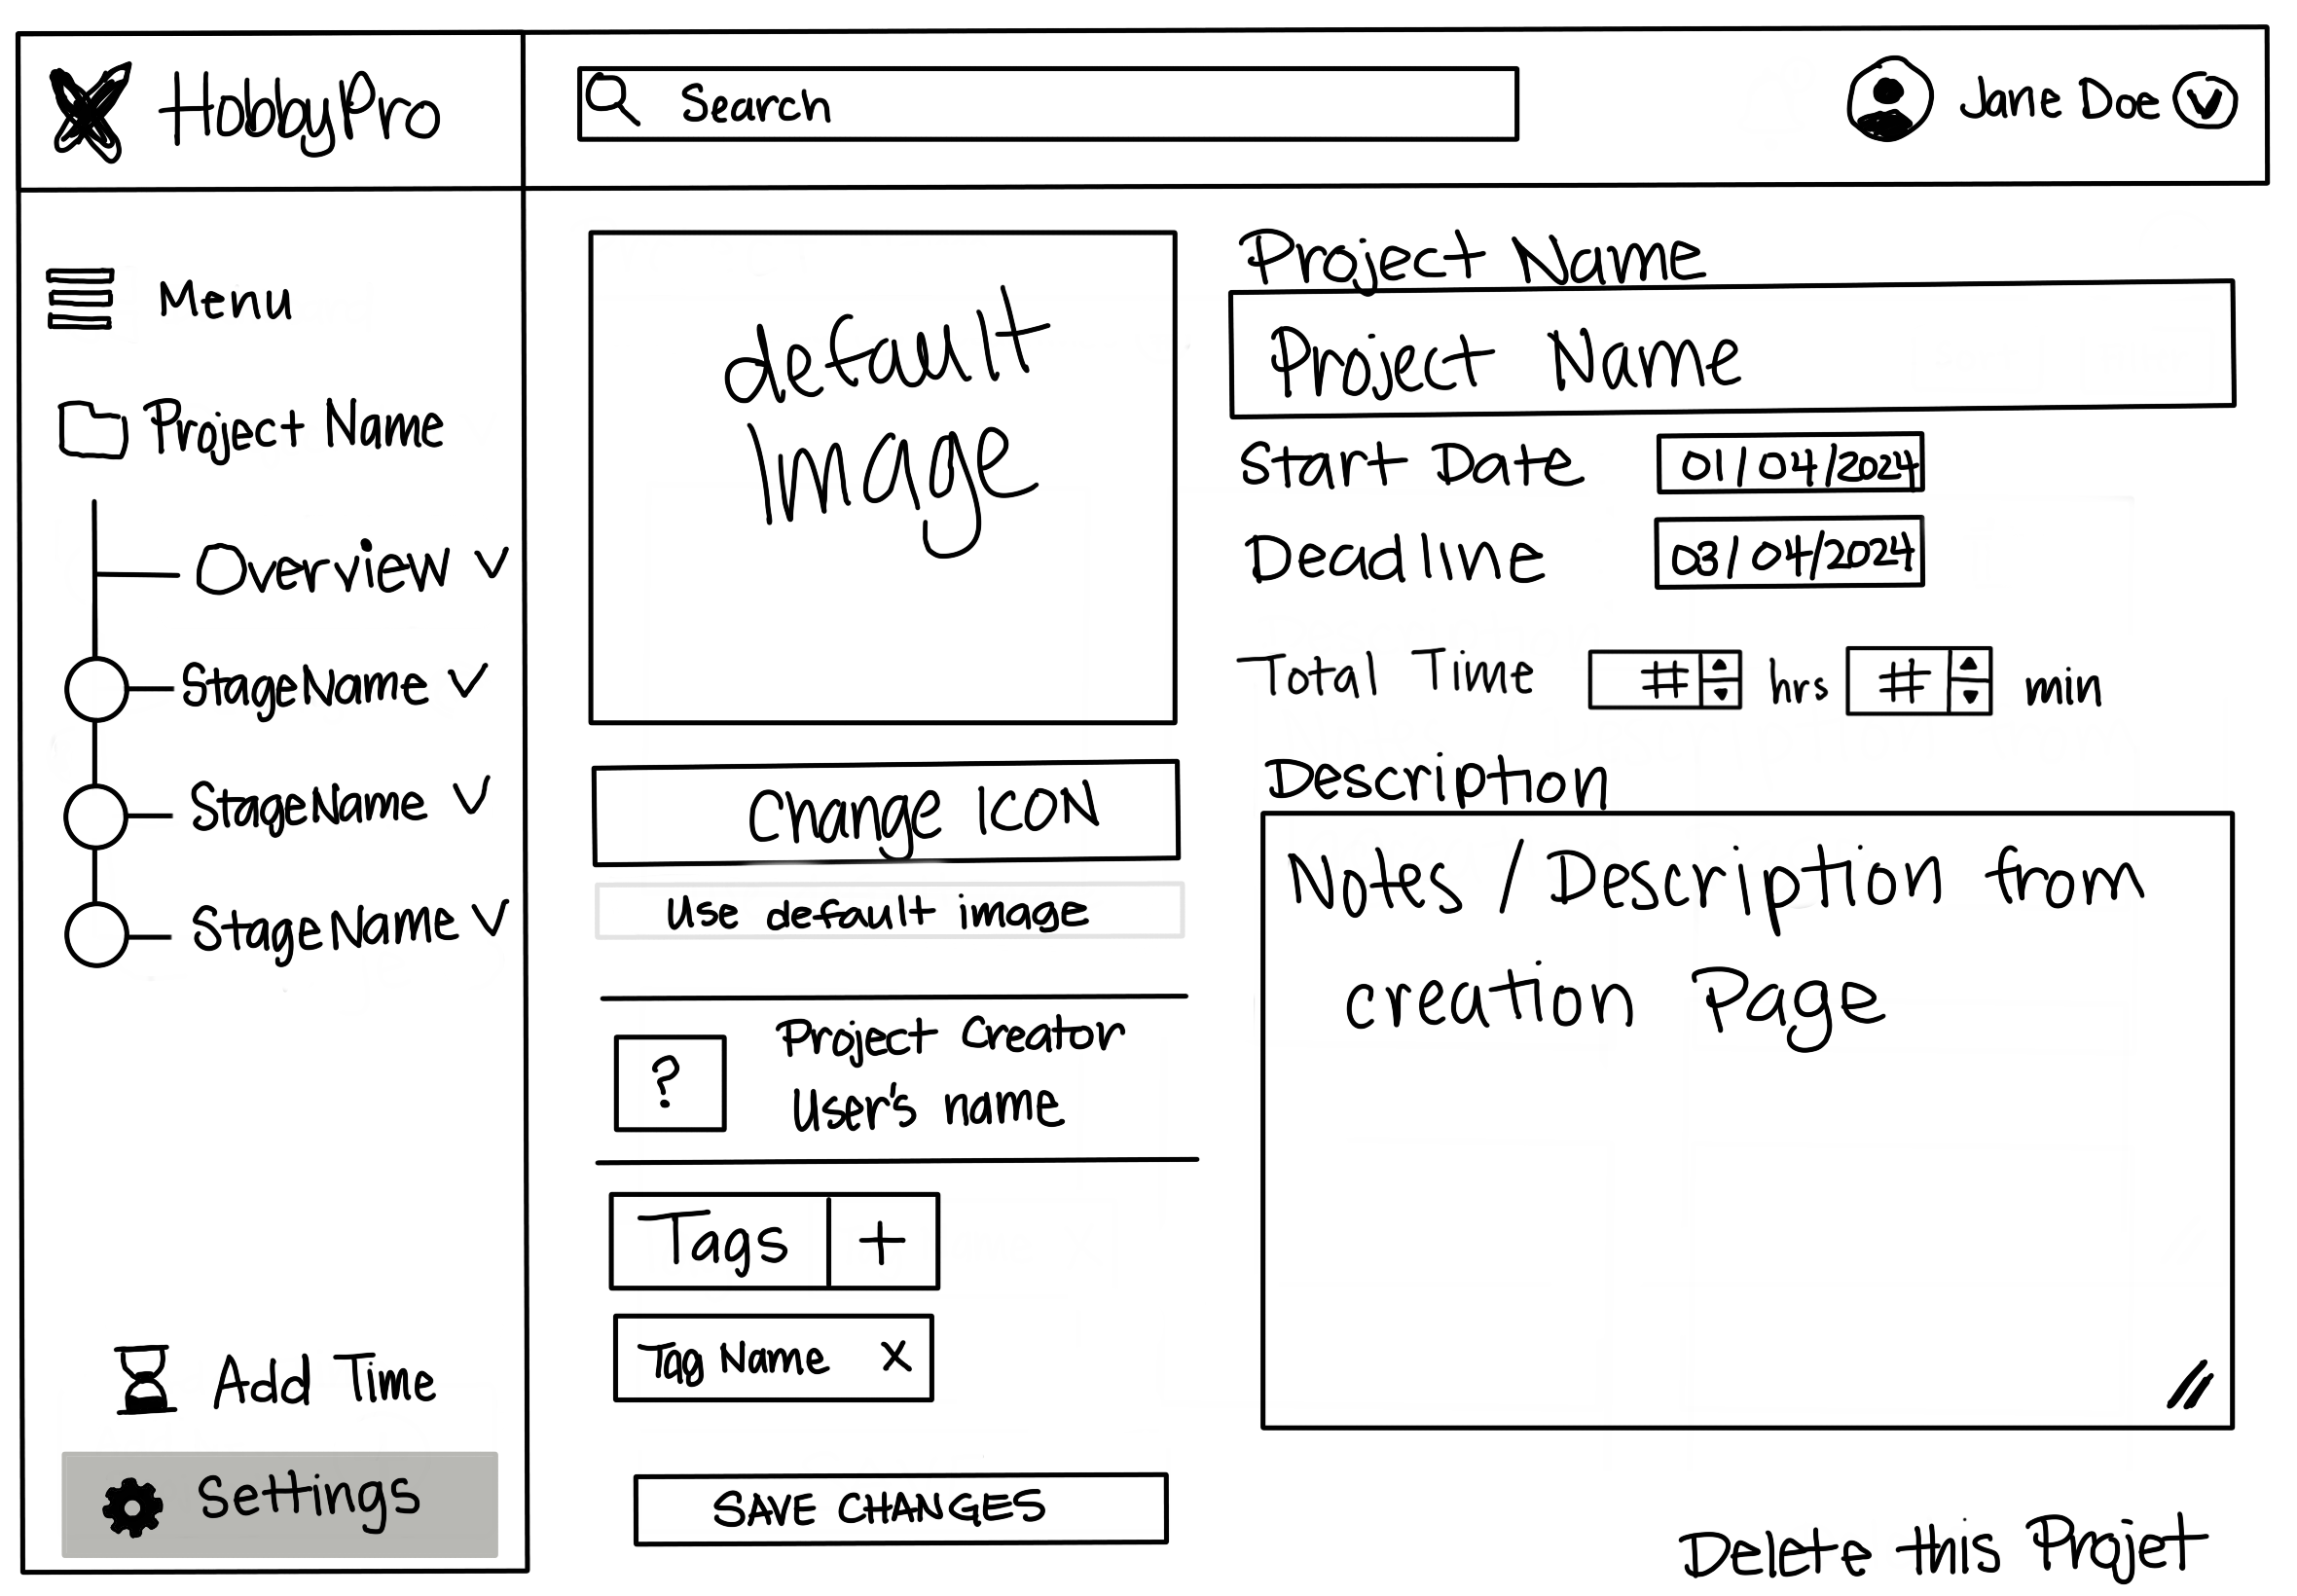 HobbyPro
Search
Jane Doe
Menu
Project Name
Overview
StageName
StageName
StageName
Add Time
Settings
default
Image
Change ICON
Use default image
?
Project Creator
User's name
Tags +
Tag Name x
SAVE CHANGES
Project Name
Project Name
Start Date 01/04/2024
Deadline 03/04/2024
Total Time # hrs # min
Description
Notes / Description from
creation Page
Delete this Projet